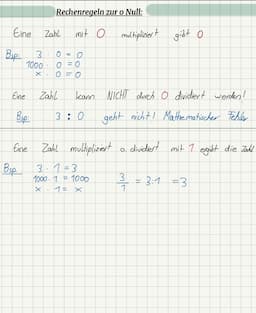 Rechenregeln zur 0 Null:
Eine Zahl mit 0 multipliziert gibt 0
Bsp: 3 · 0 = 0
1000 · 0 = 0
x · 0 = 0
Eine Zahl kann NICHT durch 0 dividiert werden!
Bsp: 3 : 0 geht nicht! Mathematischer Fehler
Eine Zahl multipliziert o. dividiert mit 1 ergibt die Zahl
Bsp: 3 · 1 = 3
1000 · 1 = 1000 3/1 = 3:1 = 3
x · 1 = x